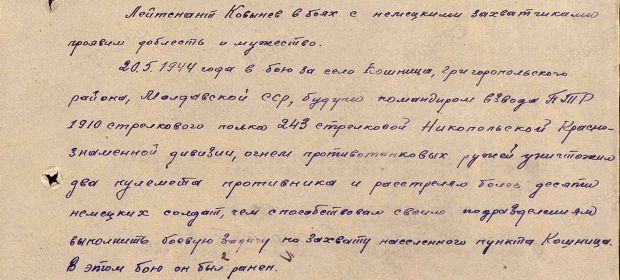 Лейтенант Ковынев в боях с немецкими захватчиками
проявил доблесть и мужество.
20.5.1944 года в бою за село Кошница, Григоропольского
района, Молдавской ССР, будучи командиром взвода ПТР
1910 стрелкового полка 243 стрелковой Никопольской Красно-
знаменной дивизии, огнем противотанковых ружей уничтожил
два пулемета противника и расстрелял более десяти
немецких солдат, чем способствовал своим подразделениям
выполнить боевую задачу по захвату населенного пункта Кошница.
В этом бою он был ранен.